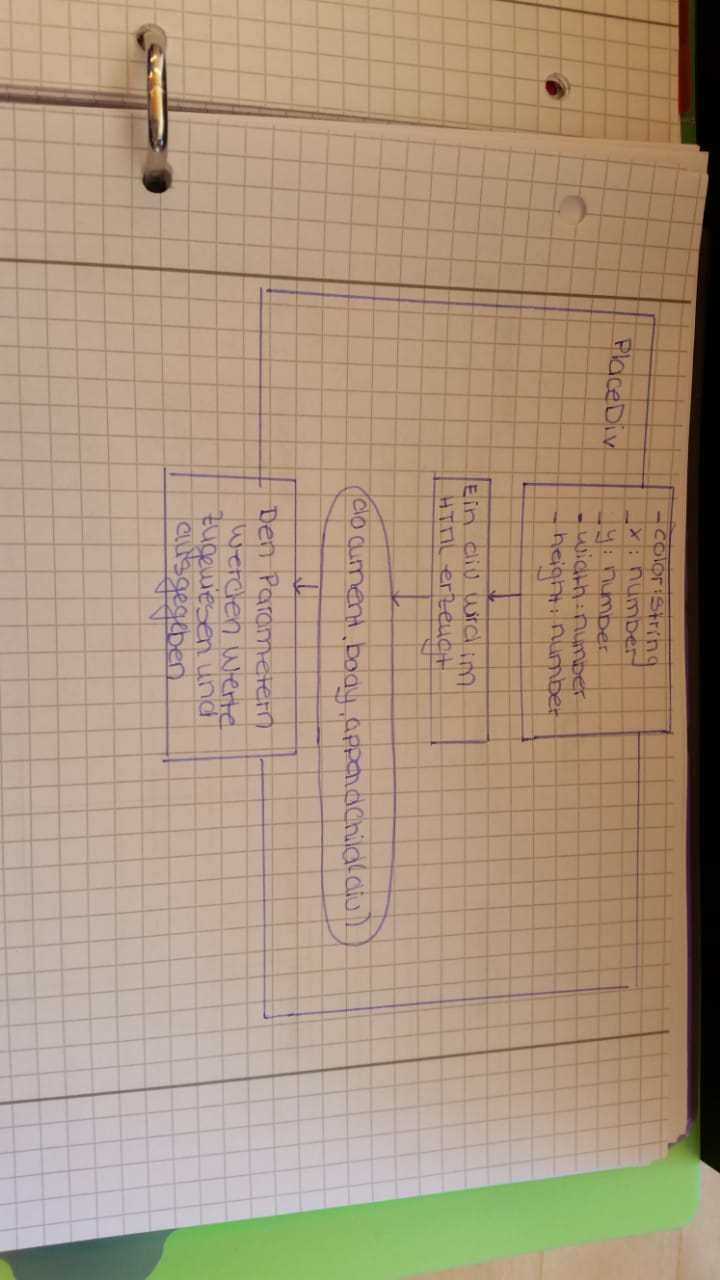 PlaceDiv
- color:string
- x : number
- y : number
- width : number
- height : number
Ein div wird im
HTML erzeugt
document.body.appendChild(div)
Den Parametern
werden Werte
zugewiesen und
ausgegeben